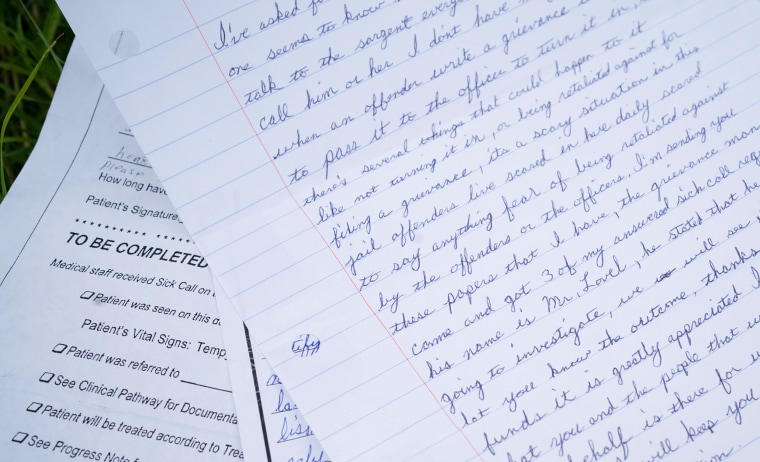 I've asked fo
one seems to know
talk to the sargent every
call him or her I don't have
when an offender write a grievance
to pass it to the officer to turn it in,
there's several things that could happen to it
like not turning it in, or being retaliated against for
filing a grievance, its a scary situation in this
jail offenders live scared in here daily scared
to say anything fear of being retaliated against
by the offenders or the officers, I'm sending you
these papers that I have, the grievance man
came and got 3 of my answered sick call req
his name is Mr. Lovel, he stated that he
going to investigate, we will see
lat you know the outcome, thanks
funds it is greatly appreciated I
at you and the people that
behalf is there for
will keep you
tify
please
How long hav
Patient's Signature
TO BE COMPLETED
Medical staff received Sick Call on
Patient was seen on this d
Patient's Vital Signs: Temp
Patient was referred to
See Clinical Pathway for Documenta
Patient will be treated according to Trea
See Progress Note f